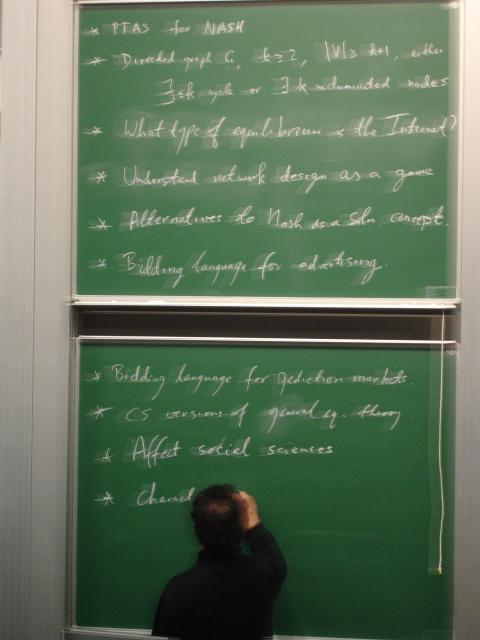 * PTAS for NASH
* Directed graph G, k≥2, |V| ≥ k+1, either
∃ ≤k cycle or ∃ k undominated nodes
* What type of equilibrium is the Internet?
* Understand network design as a game
* Alternatives to Nash as a soln. concept.
* Bidding language for advertising.
* Bidding language for prediction markets.
* CS versions of general eq. theory
* Affect social sciences
* Charac